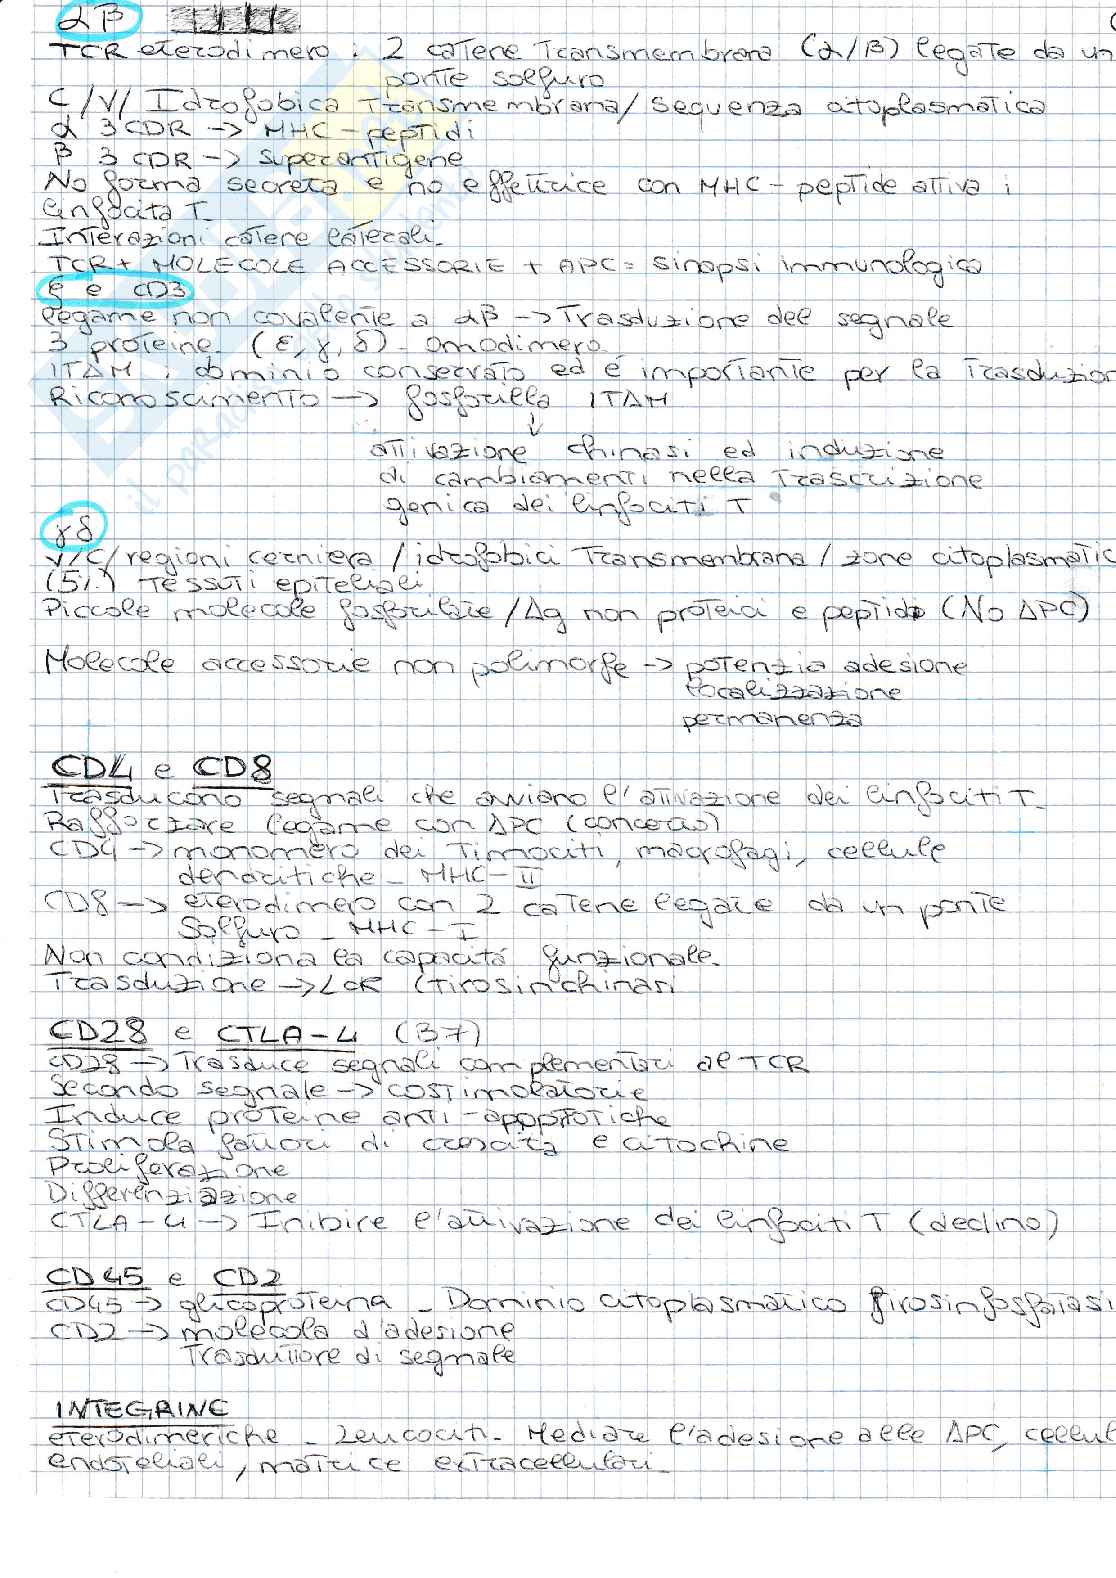 αβ
TCR eterodimero : 2 catene transmembrana (α/β) legate da un
ponte solfuro
C/V/ Idrofobica transmembrana/ sequenza citoplasmatica
α 3 CDR -> MHC - peptidi
β 3 CDR -> superantigene
No forma secreta e no effettrice con MHC - peptide attiva i
linfocita T.
Interazioni catene laterali.
TCR + MOLECOLE ACCESSORIE + APC = sinapsi immunologica
ξ e CD3
legame non covalente a αβ -> Trasduzione del segnale
3 proteine. (ε, γ, δ) - omodimero
ITAM : dominio conservato ed è importante per la trasduzion
Riconoscimento -> fosforilla ITAM
↓
attivazione chinasi ed induzione
di cambiamenti nella trascrizione
genica dei linfociti T
γδ
V/C/regioni cerniera / idrofobici transmembrana / zone citoplasmatic
(5%) Tessuti epiteliali
Piccole molecole fosforilate / Ag non proteici e peptidi (No APC)
Molecole accessorie non polimorfe -> potenzia adesione
localizzazione
permanenza
CD4 e CD8
Trasducono segnali che avviano l'attivazione dei linfociti T.
Rafforzare legame con APC (concerto)
CD4 -> monomero dei Timociti, macrofagi, cellule
dendritiche - MHC-II
CD8 -> eterodimero con 2 catene legate da un ponte
Solfuro - MHC - I
Non condiziona la capacità funzionale.
Trasduzione -> LcK (tirosinchinasi
CD28 e CTLA-4 (B7)
CD28 -> Trasduce segnali complementari al TCR
Secondo segnale -> costimolatorie
Induce proteine anti-apoptotiche
Stimola fattori di crescita e citochine
Proliferazione
Differenziazione
CTLA-4 -> Inibire l'attivazione dei linfociti T (declino)
CD45 e CD2
CD45 -> glicoproteina - Dominio citoplasmatico tirosinfosfatasi
CD2 -> molecola d'adesione
Trasduttore di segnale
INTEGRINE
eterodimeriche - Leucociti - Mediare l'adesione alle APC, cellul
endoteliali, matrice extracellulari.